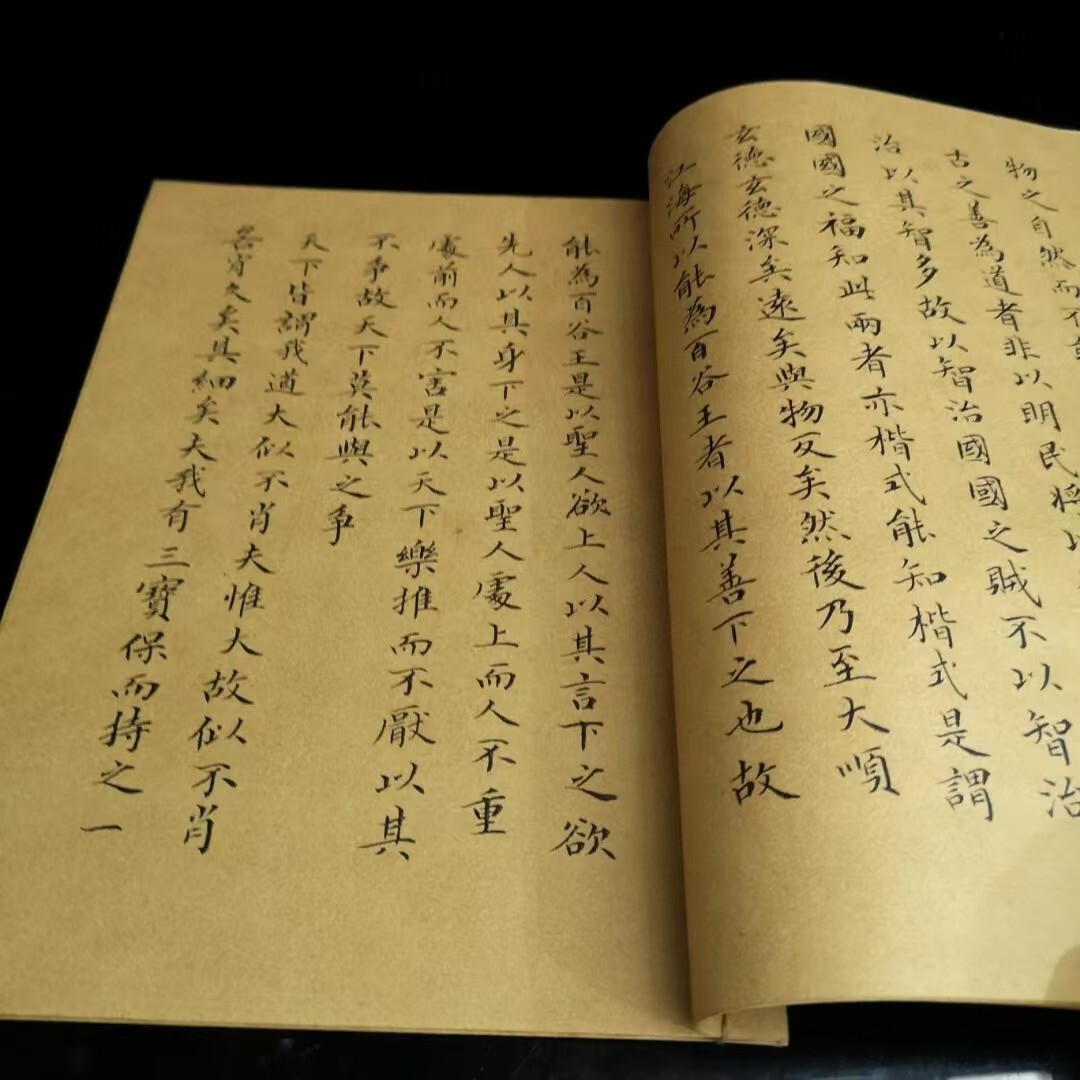 物之自然而不
古之善為道者非以明民將以
治以其智多故以智治國國之賊不以智治
國國之福知此兩者亦楷式能知楷式是謂
玄德玄德深矣遠矣與物反矣然後乃至大順
江海所以能為百谷王者以其善下之也故
能為百谷王是以聖人欲上人以其言下之欲
先人以其身下之是以聖人處上而人不重
處前而人不害是以天下樂推而不厭以其
不爭故天下莫能與之爭
天下皆謂我道大似不肖夫惟大故似不肖
若肖久矣其細矣夫我有三寶保而持之一